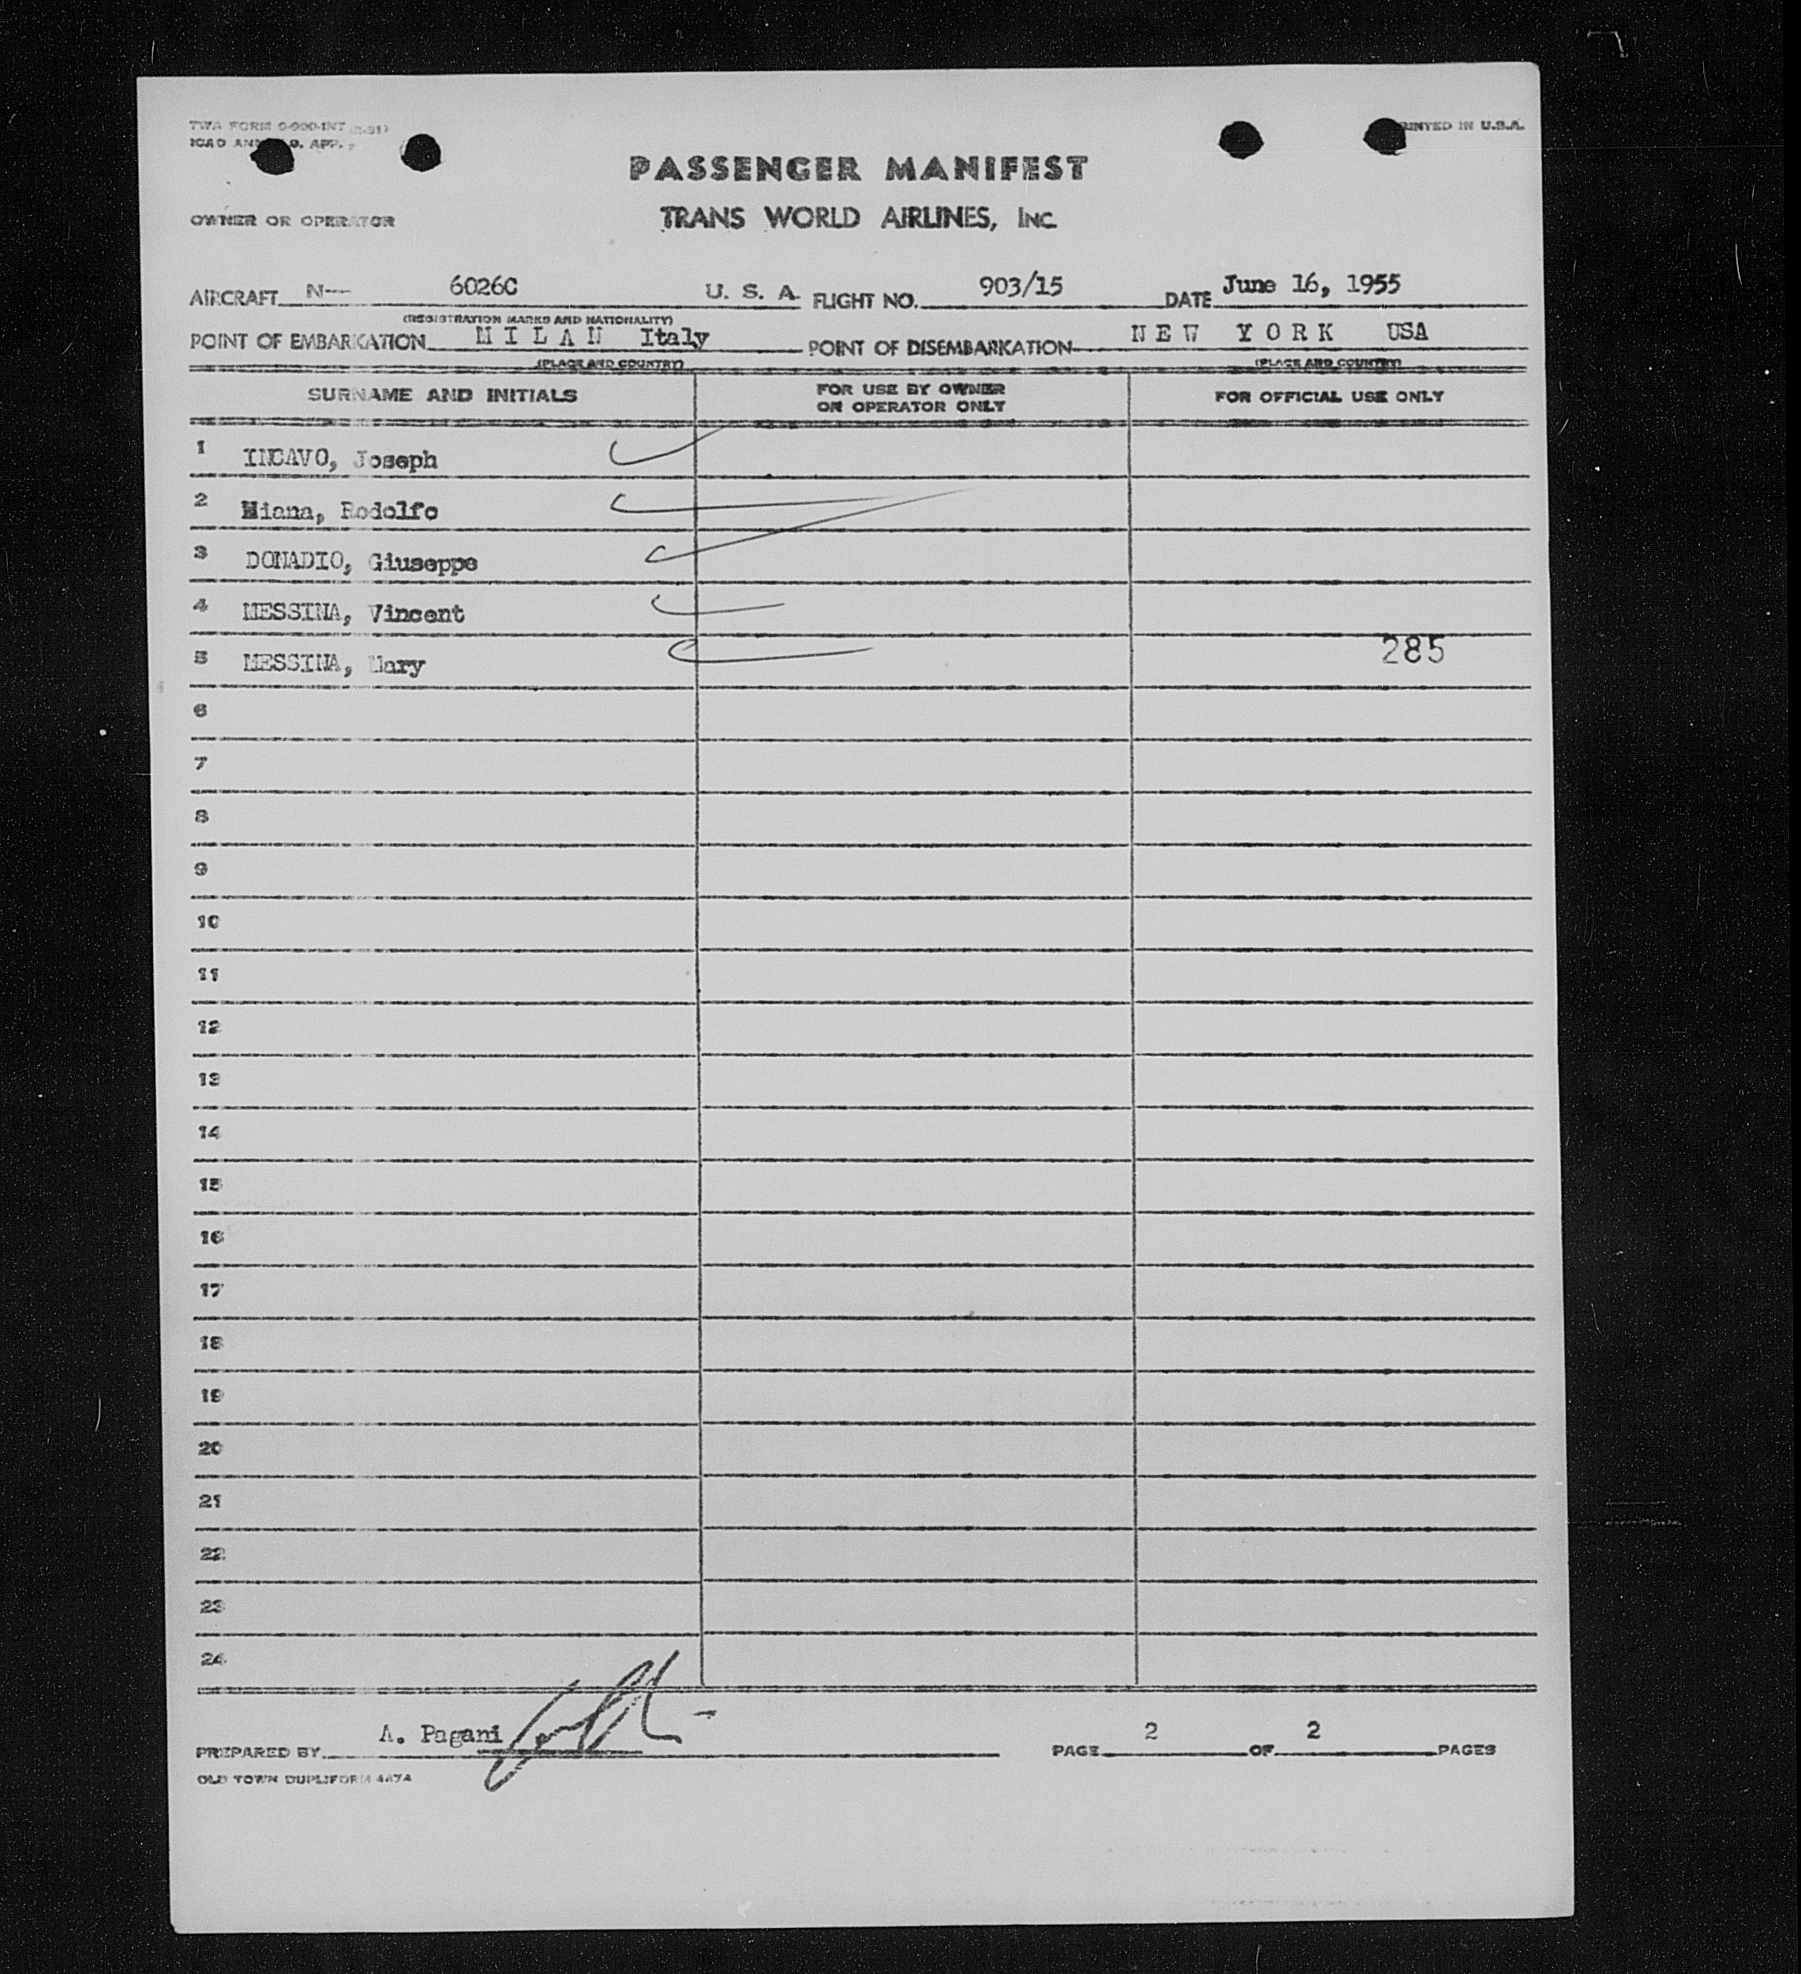 TWA FORM
ICAO
PRINTED IN U.S.A.
PASSENGER MANIFEST
OWNER OR OPERATOR
TRANS WORLD AIRLINES, INC.
AIRCRAFT N-- 6026C U. S. A. FLIGHT NO. 903/15 DATE June 16, 1955
(REGISTRATION MARKS AND NATIONALITY)
POINT OF EMBARKATION M I L A N Italy POINT OF DISEMBARKATION N E W Y O R K USA
(PLACE AND COUNTRY) (PLACE AND COUNTRY)
SURNAME AND INITIALS FOR USE BY OWNER OR OPERATOR ONLY FOR OFFICIAL USE ONLY
1 INCAVO, Joseph
2 Miana, Rodolfo
3 DONADIO, Giuseppe
4 MESSINA, Vincent
5 MESSINA, Mary 285
6
7
8
9
10
11
12
13
14
15
16
17
18
19
20
21
22
23
24
PREPARED BY A. Pagani PAGE 2 OF 2 PAGES
OLD TOWN DUPLIFORM